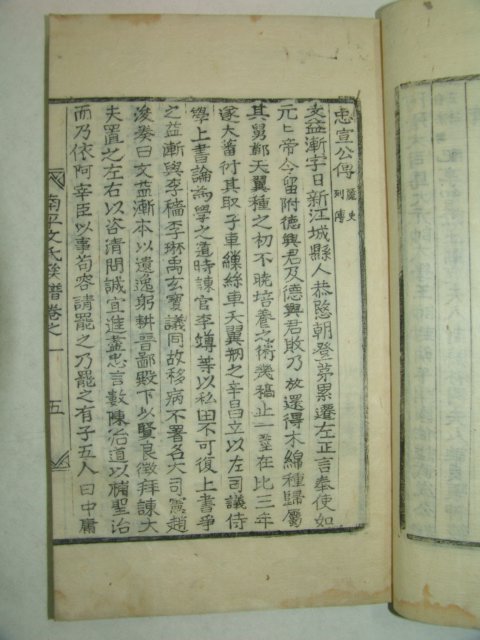 忠宣公傳 麗史列傳
文益漸字日新江城縣人恭愍朝登第累遷左正言奉使如
元元帝今留附德興君及德興君敗乃放還得木綿種歸屬
其舅鄭天翼種之初不曉培養之術幾稿止一莖在比三年
遂大蕃衍其取子車繅絲車天翼刱之辛昌立以左司議侍
學上書論為學之道時諫官李竴等以私田不可復上書爭
之益漸與李穡李琳禹玄寶議同故移病不署名大司憲趙
浚奏曰文益漸本以遺逸躬耕晉鄙殿下以賢良徵拜諫大
夫置之左右以咨清問誠宜進盡忠言數陳治道以補聖治
而乃依阿宰臣以事苟容請罷之乃罷之有子五人曰中庸
南平文氏族譜卷之一 五